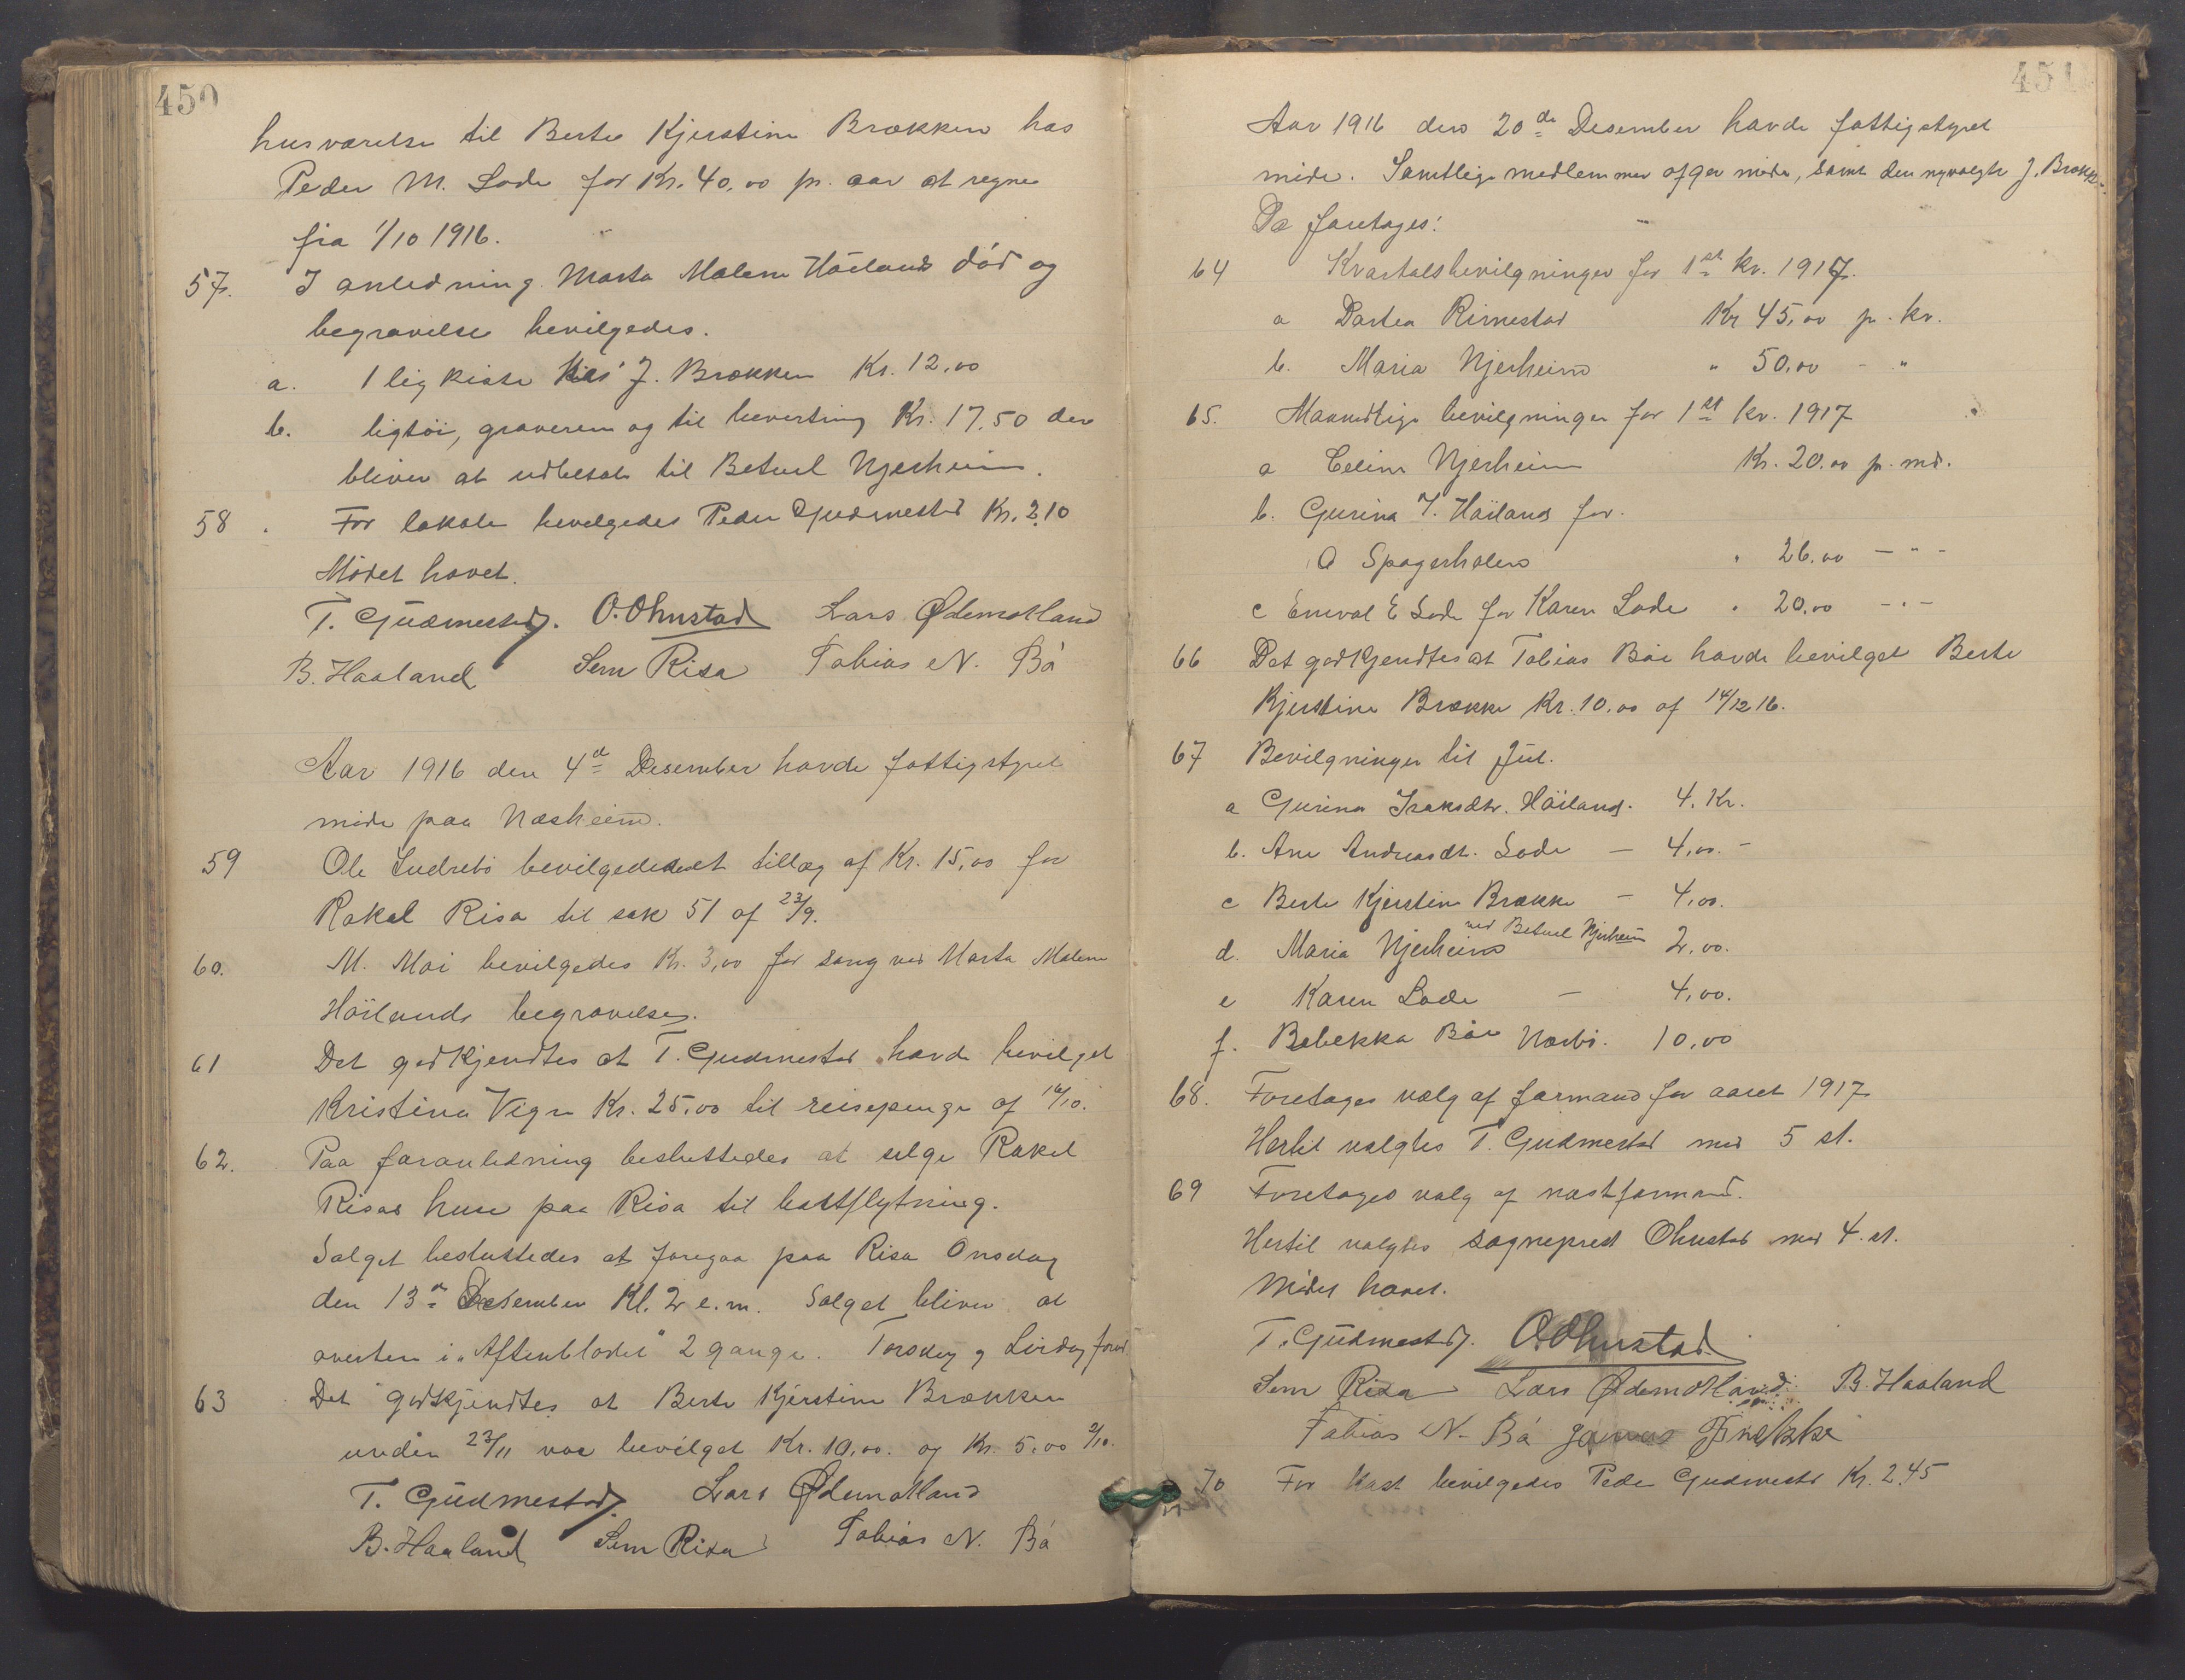 450
husværelse til Berte Kjerstine Brækken hos
Peder M. Lode for Kr. 40,00 pr. aar at regne
fra 1/10 1916.
57. I anledning Marta Malene Höilands død og
begravelse bevilgedes.
a. 1 lig kiste hos J. Brækken Kr. 12,00
b. ligtöi, graveren og til bevertning Kr. 17,50 der
bliver at udbetale til Betuel Njerheim.
58. For lokale bevilgedes Peder Gudmestad Kr. 2,10
Mödet hævet.
T. Gudmestad. O. Ohnstad Lars Ødemotland
B. Haaland Sem Risa Tobias N. Bö
Aar 1916 den 4de Desember havde fattigstyret
möde paa Næsheim.
59 Ole Ludvebö bevilgedes et tillæg af Kr. 15,00 for
Rakel Risa til sak 51 af 23/9.
60. M. Moi bevilgedes Kr. 3,00 for sang ved Marta Malene
Höilands begravelse.
61 Det godkjendtes at T. Gudmestad havde bevilget
Kristina Vigre Kr. 25,00 til reisepenge af 16/10.
62. Paa foranledning besluttedes at selge Rakel
Risas huse paa Risa til bortflytning.
Salget besluttedes at foregaa paa Risa Onsdag
den 13de Desember Kl. 2 e.m. Salget bliver at
avertere i "Aftenbladet" 2 gange. Torsdag og Lördag forud.
63 Det godkjendtes at Berte Kjerstine Brækken
under 23/11 var bevilget Kr. 10,00. og Kr. 5,00 2/10.
T. Gudmestad. Lars Ødemotland
B. Haaland Sem Risa Tobias N. Bö
451
Aar 1916 den 20de Desember havde fattigstyret
möde. Samtlige medlemmer afgav möde, samt den nyvalgte J. Brække.
Da foretoges:
64 Kvartalsbevilgninger for 1ste kv. 1917.
a Dortea Rimestad Kr 45,00 pr. kv.
b. Maria Njerheim " 50,00 - "
65. Maanedlige bevilgninger for 1ste kv. 1917
a Celine Njerheim Kr. 20,00 pr. md.
b. Gurina I. Höiland for.
O Spogerholen " 26,00 - " -
c Eneval E Lode for Karen Lode " 20,00 - " -
66 Det godkjendtes at Tobias Böe havde bevilget Berte
Kjerstine Brække Kr. 10,00 af 14/12 16.
67 Bevilgninger til Jul.
a Gurina Isaksdtr. Höiland. 4. Kr.
b. Ane Andreasdt. Lode - 4,00. -
c Berte Kjerstine Brække - 4,00.
d. Maria Njerheim ved Betuel Njerheim 2,00.
e Karen Lode - 4,00.
f. Rebekka Böe Nærbö. 10,00
68. Foretoges valg af formand for aaret 1917
Hertil valgtes T. Gudmestad med 5 st.
69 Foretoges valg af næstformand.
Hertil valgtes sogneprest Ohnstad med 4. st.
Mödet hævet.
T. Gudmestad. O. Ohnstad
Sem Risa Lars Ødemotland B. Haaland
Tobias N. Bö Brekke
70 For kost bevilgedes Peder Gudmestad Kr. 2,45